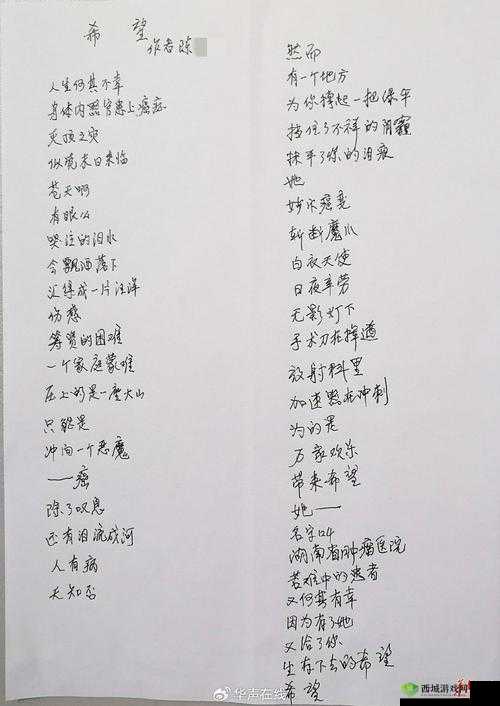 希望
作者陈
人生何其不幸
身体内器官患上癌症
灭顶之灾
似境末日来临
苍天啊
有眼么
哭泣的泪水
今飘洒落下
汇集成一片汪洋
伤感
筹资的困难
一个家庭蒙难
压上的是一座大山
只能是
冲向一个恶魔
——癌
除了叹息
还有泪流成河
人有病
天知否
然而
有一个地方
为你撑起一把保伞
挡住了不祥的阴霾
抹平了你的泪痕
她
斩断魔爪
白衣天使
日夜辛劳
无影灯下
手术刀在挥道
放射科里
加速器在冲刺
为的是
万家欢乐
带来希望
她——
名字叫
湖南省肿瘤医院
苦难中的患者
又何其有幸
因为有了她
又给了你
生存下去的希望
希望
@华声在线
西城游戏网